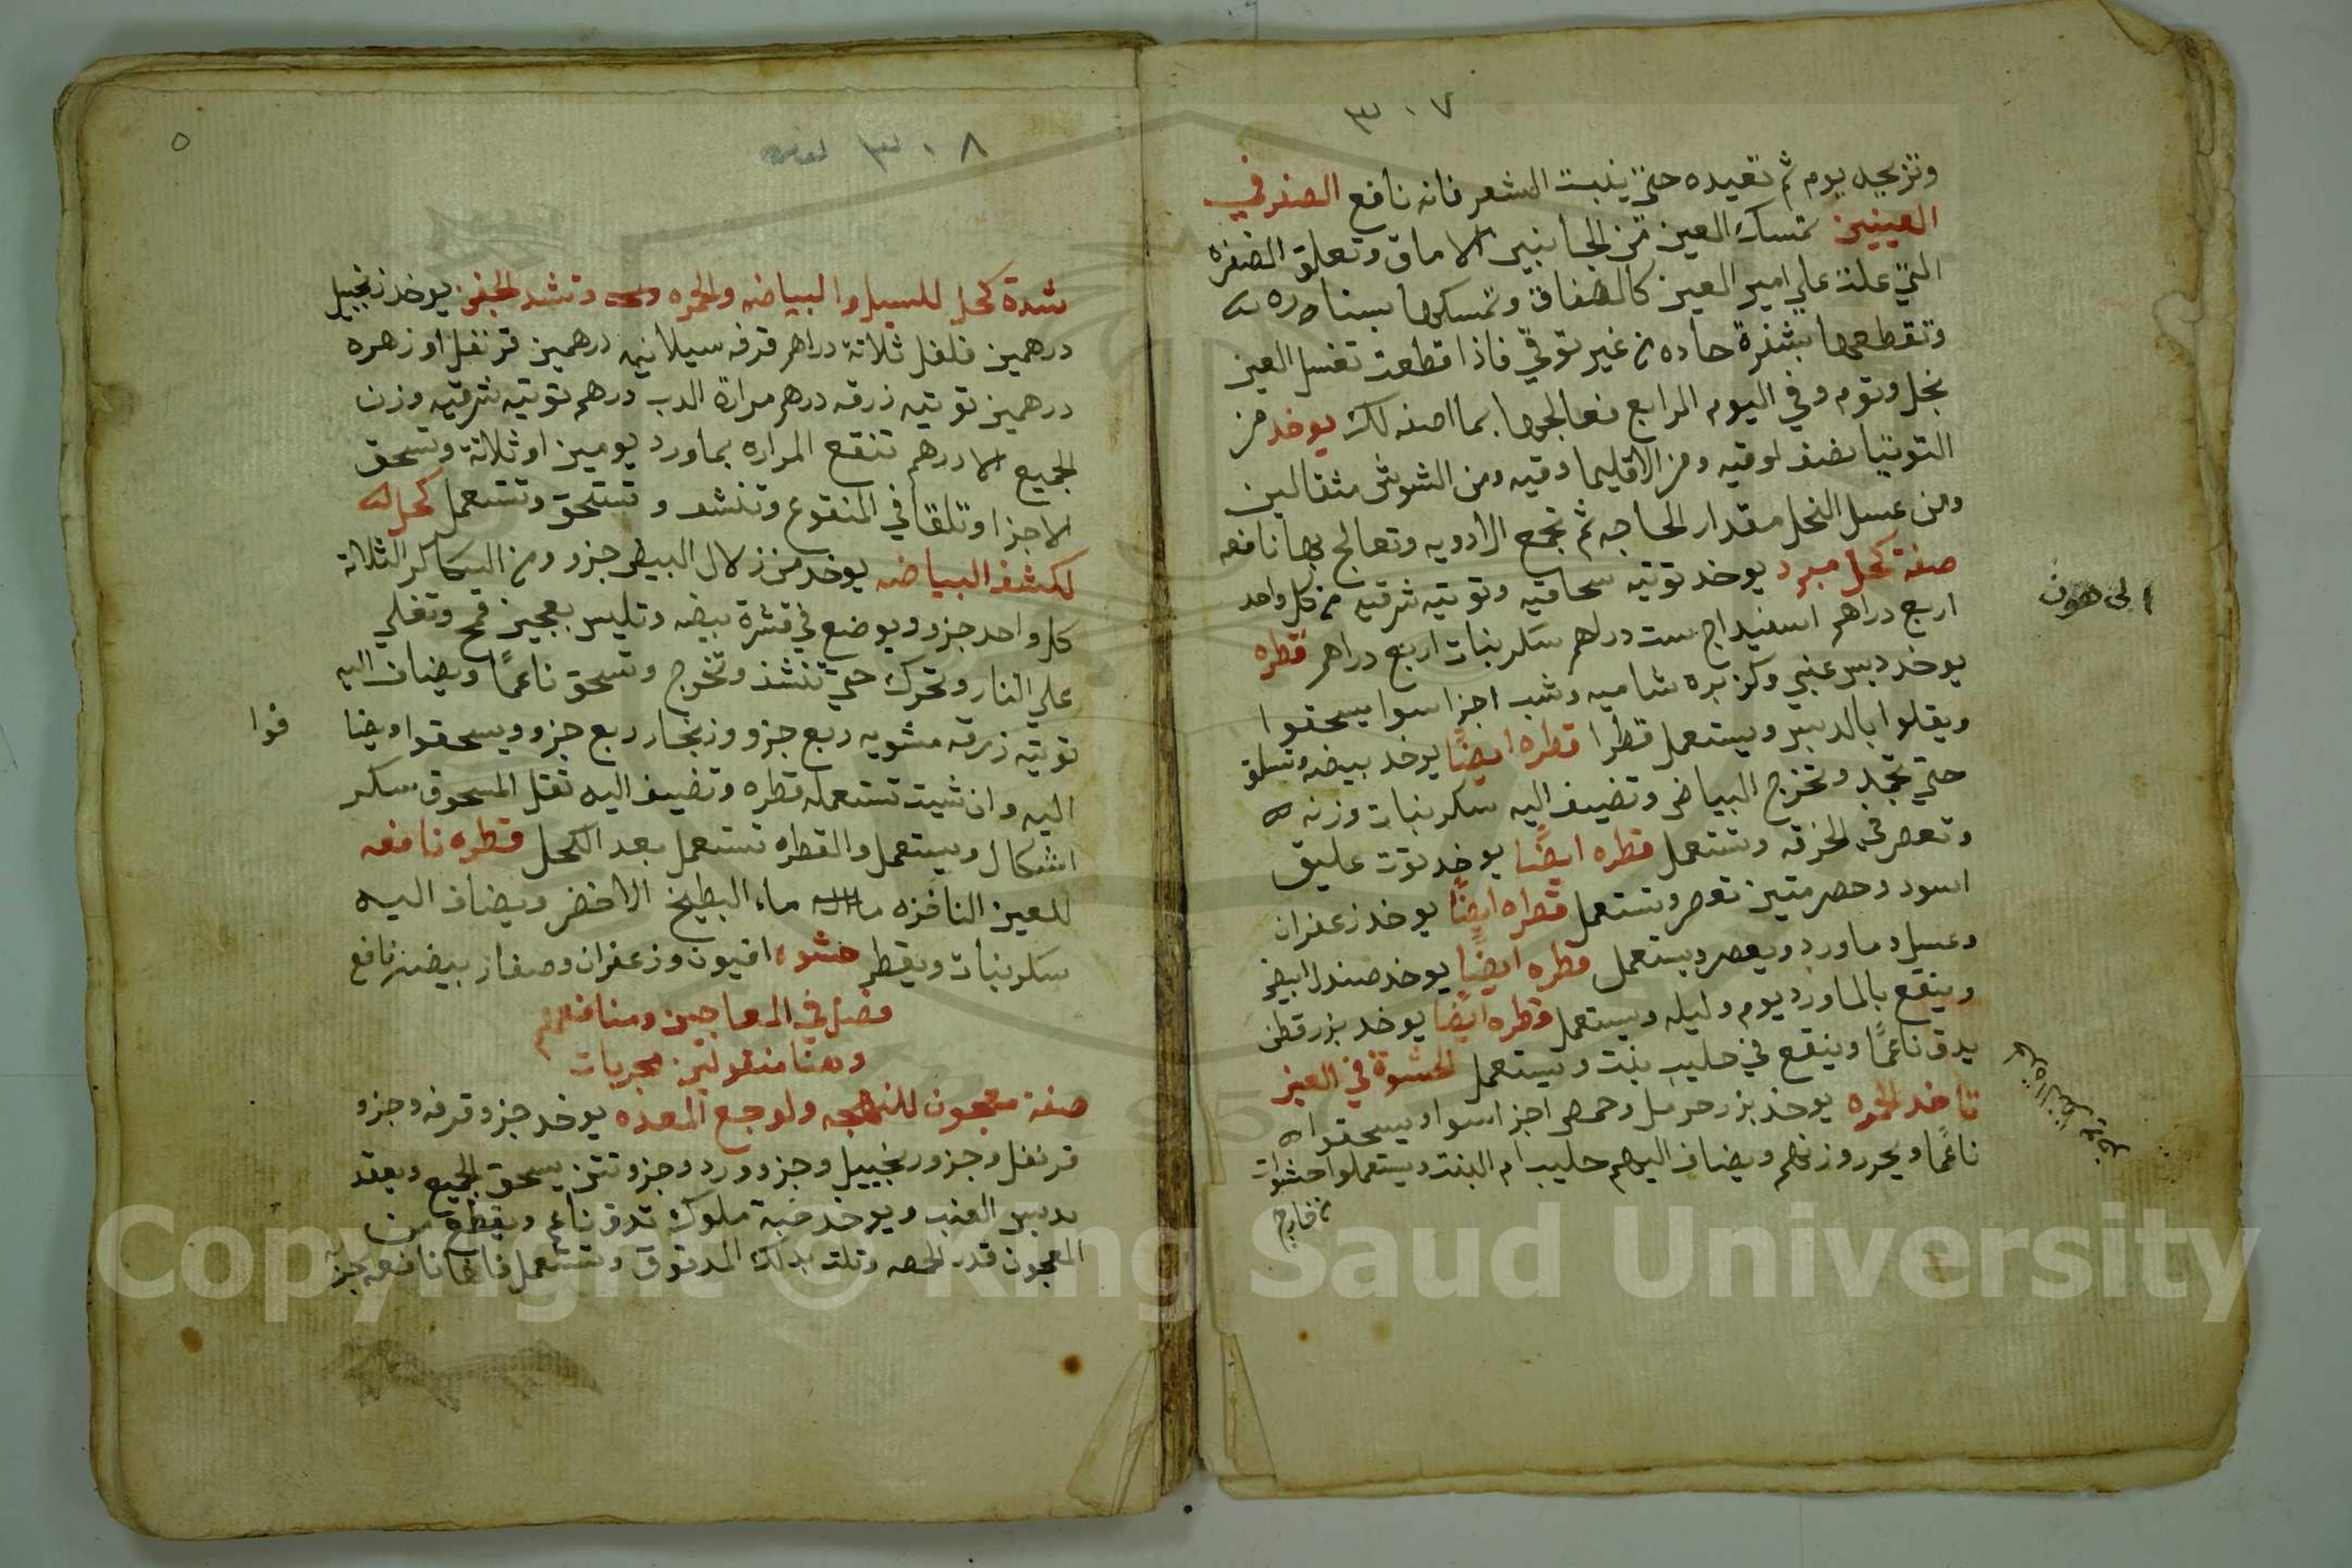 ٣٠٧
وتزيجه يوم ثم تعيده حتي ينبت الشعر فانه نافع الضفر في
العينين تمسك العين من الجانبين الاماق وتعلق الضفره
التي علت علي امير العين كالصفاق وتمسكها بسناره
وتقطعها بشفرة حاده من غير توقي فاذا قطعت تغسل العين
بخل وتوم وفي اليوم الرابع تعالجها بما اصفه لك يوخد من
التوتيا نصف اوقيه ومن الاقليما وقيه ومن الشوش مثقالين
ومن عسل النحل مقدار الحاجه ثم تجمع الادويه وتعالج بها نافعه
صفة كحل مبرد يوخد توتيه سحاقيه وتوتيه شرقيه من كل واحد
اربع دراهم اسفيداج ست دراهم سكر نبات اربع دراهم قطره
يوخد دبس عنبي وكزبره شاميه وشب اجزا سوا يسحقوا
ويقلوا بالدبس ويستعمل قطرا قطره ايضًا يوخد بيضه وتسلق
حتي تجمد وتخرج البياض وتضيف اليه سكر نبات وزنه
وتعصر في الخرقه وتستعمل قطره ايضًا يوخد توت عليق
اسود وحصر متين تعصر وتستعمل قطراه ايضًا يوخد زعفران
وعسل وماورد ويعصر ويستعمل قطره ايضًا يوخد صندل ابيض
وينقع بالماورد يوم وليله ويستعمل قطره ايضًا يوخد بزر قطن
يدق ناعمًا وينقع في حليب بنت ويستعمل لحشوة في العين
تاخد الحمره يوخد بزر حرمل وحمص اجزا سوا ويسحقوا
ناعمًا ويحرر وزنهم ويضاف اليهم حليب ام البنت ويستعملوا حشوات
من خارج
الى هون
٥
٣٠٨
شدة كحل للسيل والبياضه والحمره وتشد الجفن يوخد زنجبيل
درهمين فلفل ثلاثة دراهم قرفه سيلانيه درهمين قرنفل او زهره
درهمين توتيه زرقه درهم مرارة الدب درهم توتيه شرقيه وزن
الجميع الا درهم تنقع المراره بماورد يومين او ثلاثة وتسحق
الاجزا وتلقا في المنقوع وتنشف وتستحق وتستعمل كحل
لكشف البياضه يوخد من زلال البيض جزو ومن السكاكر الثلاثة
كل واحد جزو ويوضع في قشرة بيضه وتليس بعجين قمح وتغلي
علي النار وتحرك حتي تنشف وتخرج وتسحق ناعمًا ويضاف اليه
توتيه زرقه مشويه ربع جزو وزنجار ربع جزو ويسحقوا ويضا
فوا
اليه وان شيت تستعمله قطره وتضيف اليه تقل المسحوق سكر
اشكال ويستعمل والقطره تستعمل بعد الكحل قطره نافعه
للعين النافزه ماء البطيخ الاخضر ويضاف اليه
سكر نبات ويقطر حشوه افيون وزعفران وصفار بيضه نافع
فصل في المعاجين ومنافعهم
وهنا منقولين مجربات
صفة معجون للنهجه ولوجع المعده يوخد جزو قرفه وجزو
قرنفل وجزو زنجبيل وجزو ورد وجزو تتن يسحق الجميع ويعقد
بدبس العنب ويوخد حبة ملوك تدق ناعم ويقطع من
المعجون قدر الحمصه وتلت بدلك المدقوق وتستعمل فانها نافعه مجربه
Copyright © King Saud University